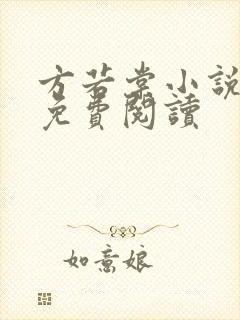 方若棠小說
免費閱讀
如意娘